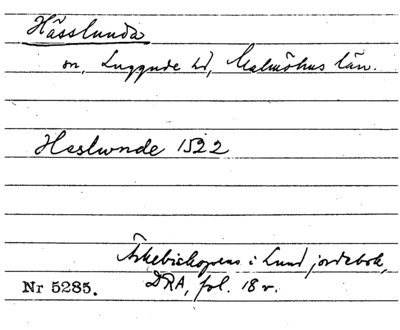 Hässlunda
sn, Luggude hd, Malmöhus län.
Haslwnde 1522
Ärkebiskopens i Lund jordebok,
DRA, fol. 18 v.
Nr 5285.